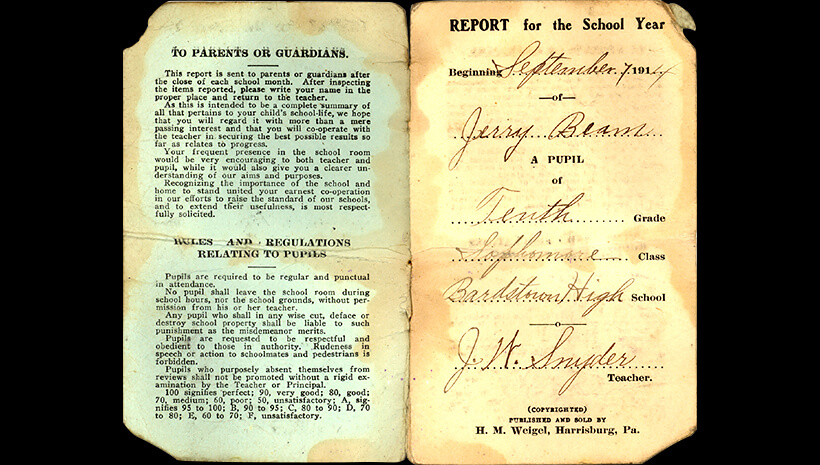 TO PARENTS OR GUARDIANS.
This report is sent to parents or guardians after
the close of each school month. After inspecting
the items reported, please write your name in the
proper place and return to the teacher.
As this is intended to be a complete summary of
all that pertains to your child's school-life, we hope
that you will regard it with more than a mere
passing interest and that you will co-operate with
the teacher in securing the best possible results so
far as relates to progress.
Your frequent presence in the school room
would be very encouraging to both teacher and
pupil, while it would also give you a clearer un-
derstanding of our aims and purposes.
Recognizing the importance of the school and
home to stand united your earnest co-operation
in our efforts to raise the standard of our schools,
and to extend their usefulness, is most respect-
fully solicited.
RULES AND REGULATIONS
RELATING TO PUPILS
Pupils are required to be regular and punctual
in attendance.
No pupil shall leave the school room during
school hours, nor the school grounds, without per-
mission from his or her teacher.
Any pupil who shall in any wise cut, deface or
destroy school property shall be liable to such
punishment as the misdemeanor merits.
Pupils are requested to be respectful and
obedient to those in authority. Rudeness in
speech or action to schoolmates and pedestrians is
forbidden.
Pupils who purposely absent themselves from
reviews shall not be promoted without a rigid ex-
amination by the Teacher or Principal.
100 signifies perfect; 90, very good; 80, good;
70, medium; 60, poor; 50, unsatisfactory; A, sig-
nifies 95 to 100; B, 90 to 95; C, 80 to 90; D, 70
to 80; E, 60 to 70; F, unsatisfactory.
REPORT for the School Year
Beginning September 7, 1914
—of—
Jerry Beam
A PUPIL
of
Tenth Grade
Sophomore Class
Bardstown High School
J. W. Snyder
Teacher.
(COPYRIGHTED)
PUBLISHED AND SOLD BY
H. M. Weigel, Harrisburg, Pa.